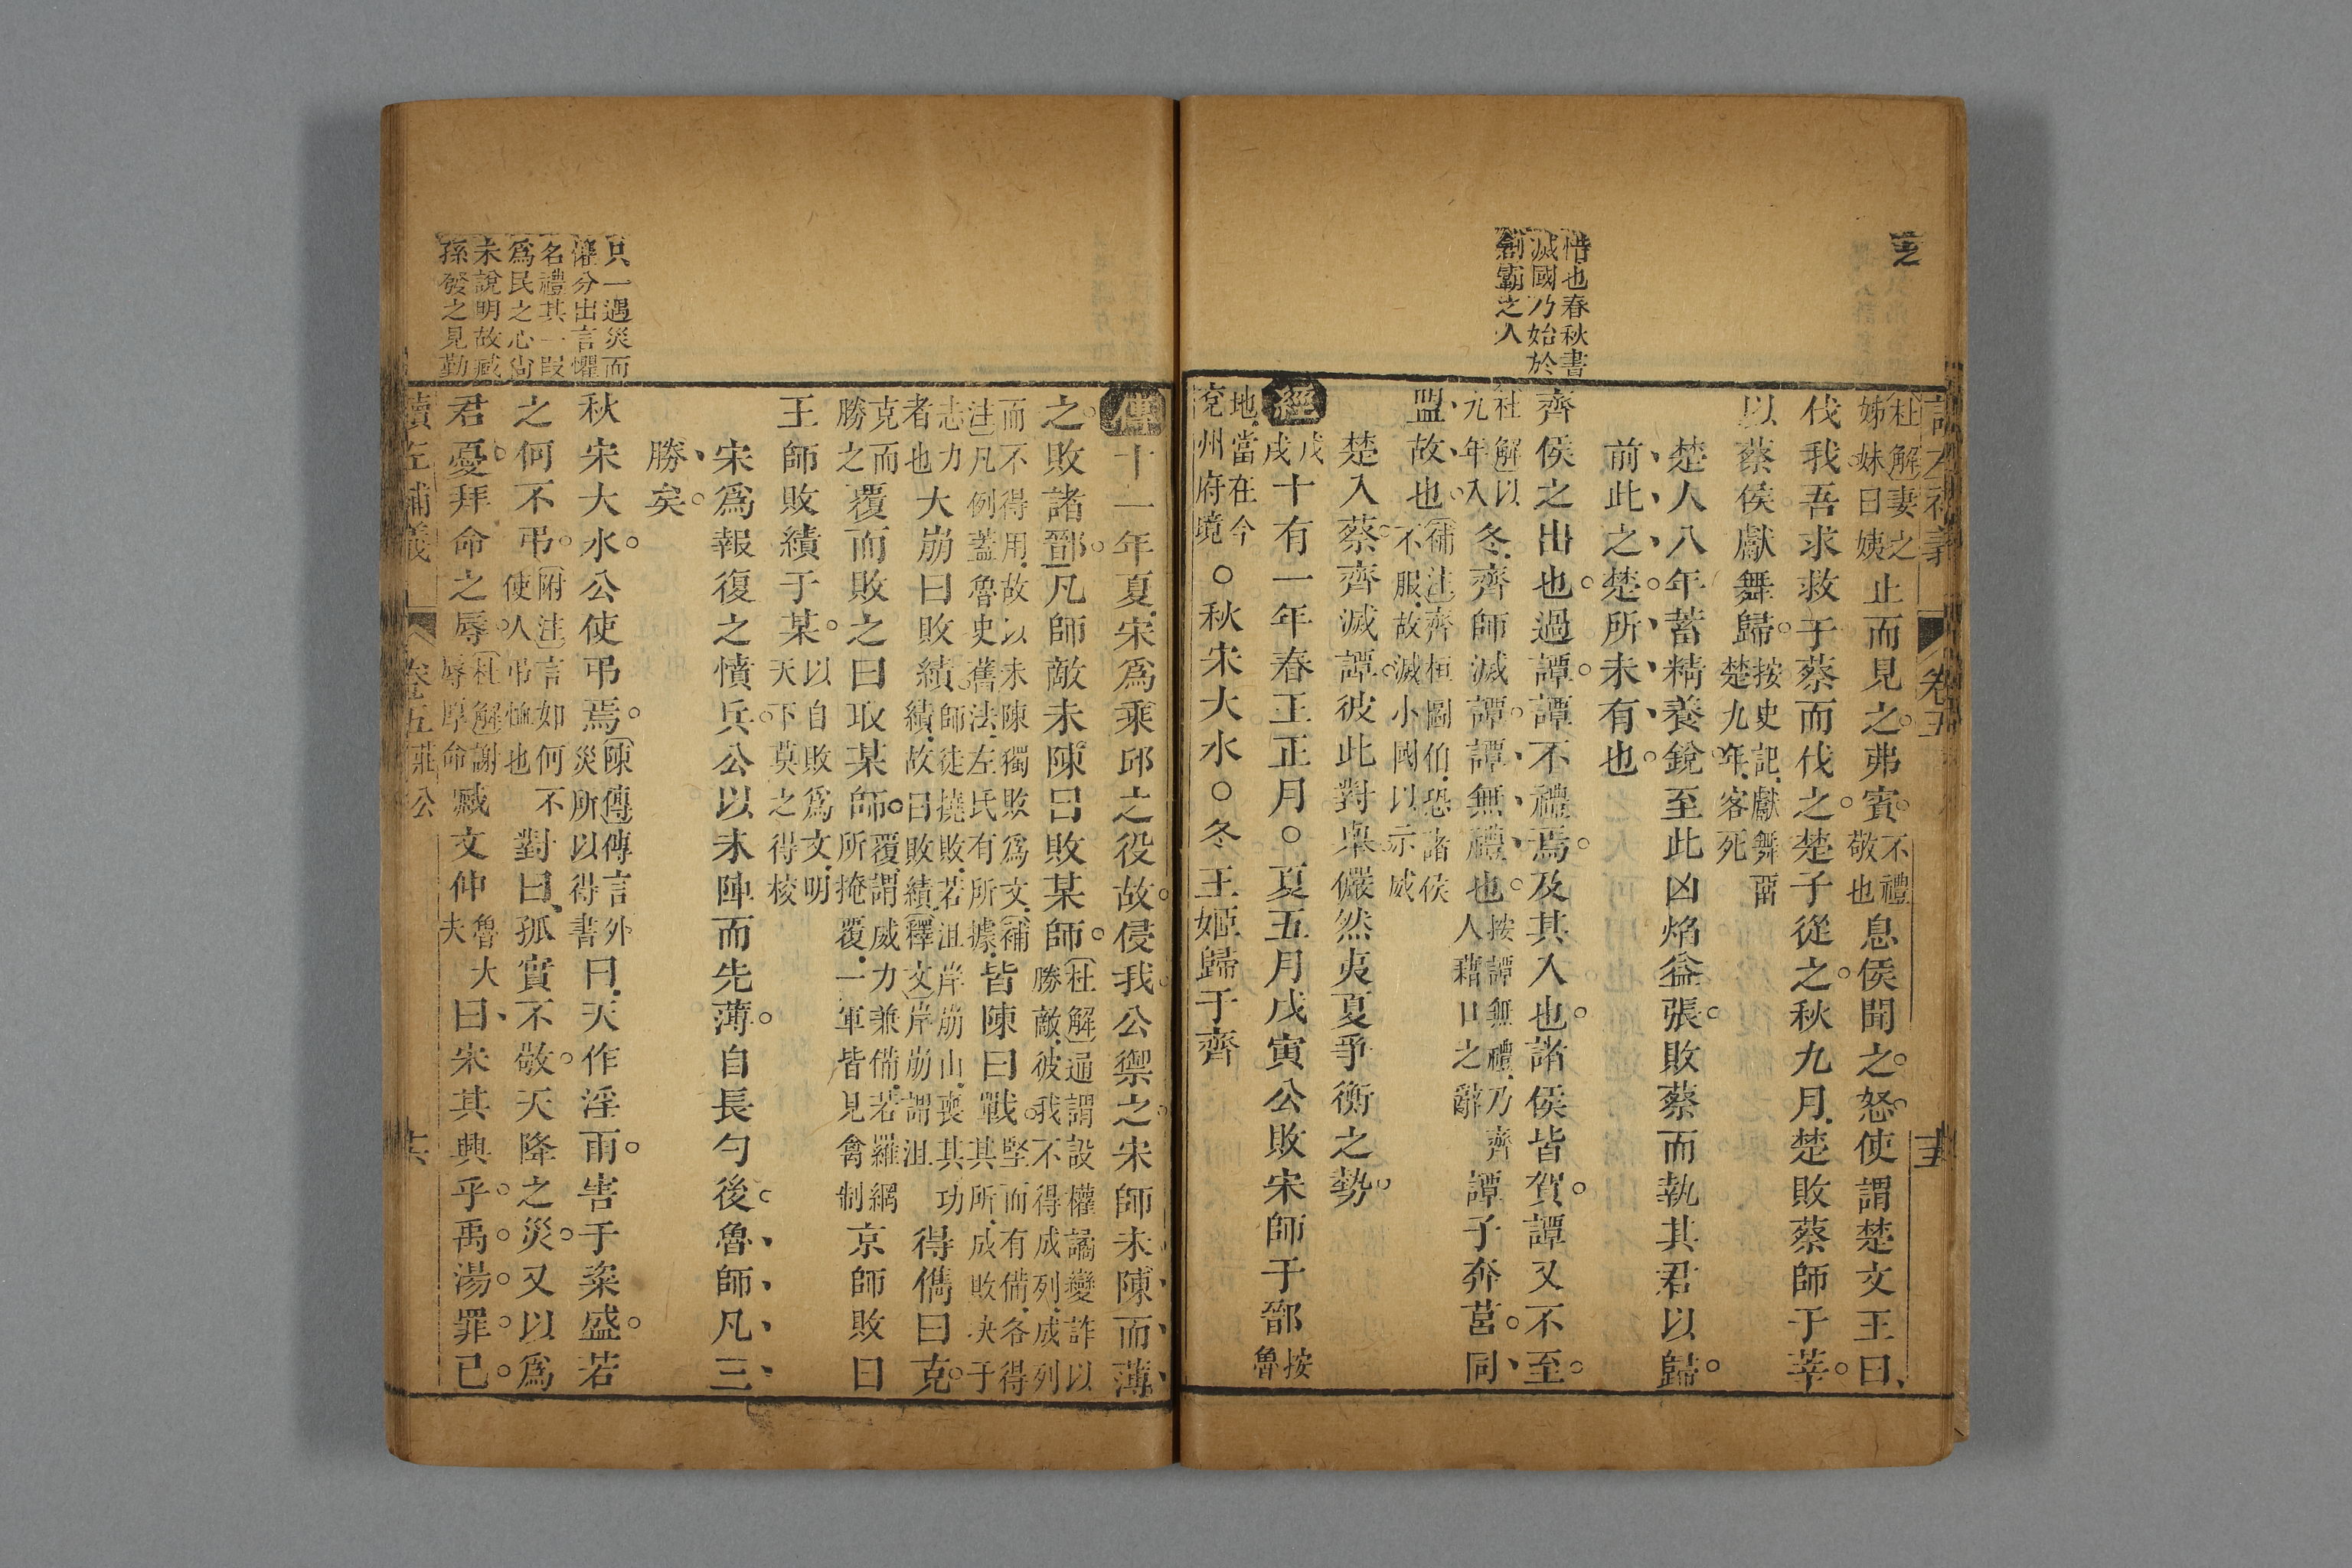 讀左補義 卷五 十五
杜解妻之姊妹曰姨止而見之。弗賓。不禮敬也息侯聞之。怒。使謂楚文王曰、
伐我。吾求救于蔡而伐之。楚子從之。秋九月.楚敗蔡師于莘。
以蔡侯獻舞歸。按史記.獻舞畱楚九年.客死
楚人八年蓄精養銳。至此凶焰益張。敗蔡而執其君以歸。
前此之楚。所未有也。
齊侯之出也。過譚。譚不禮焉。及其入也。諸侯皆賀。譚又不至。
杜解以九年入冬.齊師滅譚。譚無禮也。按譚無禮.乃齊人藉口之辭譚子奔莒。同
盟故也。補注齊桓圖伯.恐諸侯不服.故滅小國以示威
楚入蔡。齊滅譚。彼此對臬。儼然夷夏爭衡之勢。
經戊戌十有一年春王正月○夏五月戊寅公敗宋師于鄑按魯
地.當在今兗州府境○秋宋大水○冬王姬歸于齊
惜也春秋書
滅國乃始於
創霸之人
傳十一年夏.宋爲乘邱之役故。侵我。公禦之。宋師未陳而薄
之。敗諸鄑。凡師敵未陳曰敗某師。杜解通謂設權譎變詐以勝敵.彼我不得成列.成列
而不得用.故以未陳獨敗爲文.補注凡例蓋魯史舊法.左氏有所據.皆陳曰戰。堅而有備.各得其所.成敗決于
志力者也大崩曰敗績。師徒撓敗.若沮岸崩山.喪其功績.故曰敗績釋文岸崩謂沮得儁曰克。
克而勝之覆而敗之曰取某師。覆謂威力兼備.若羅網所掩覆.一軍皆見禽制京師敗曰
王師敗績于某。以自敗爲文.明天下莫之得校
宋爲報復之憤兵。公以未陣而先薄。自長勺後。魯師凡三
勝矣。
秋宋大水。公使弔焉。陳傳傳言外災所以得書曰.天作淫雨。害于粢盛。若
之何不弔。附注言如何不使人弔恤也對曰、孤實不敬。天降之災。又以爲
君憂。拜命之辱。杜解謝辱厚命臧文仲魯大夫曰、宋其興乎。禹。湯。罪。己。
只一遇災而
懼分出言懼
名禮其一叚
爲民之心尙
未說明故臧
孫發之見勤
讀左補義 卷五莊公 十六